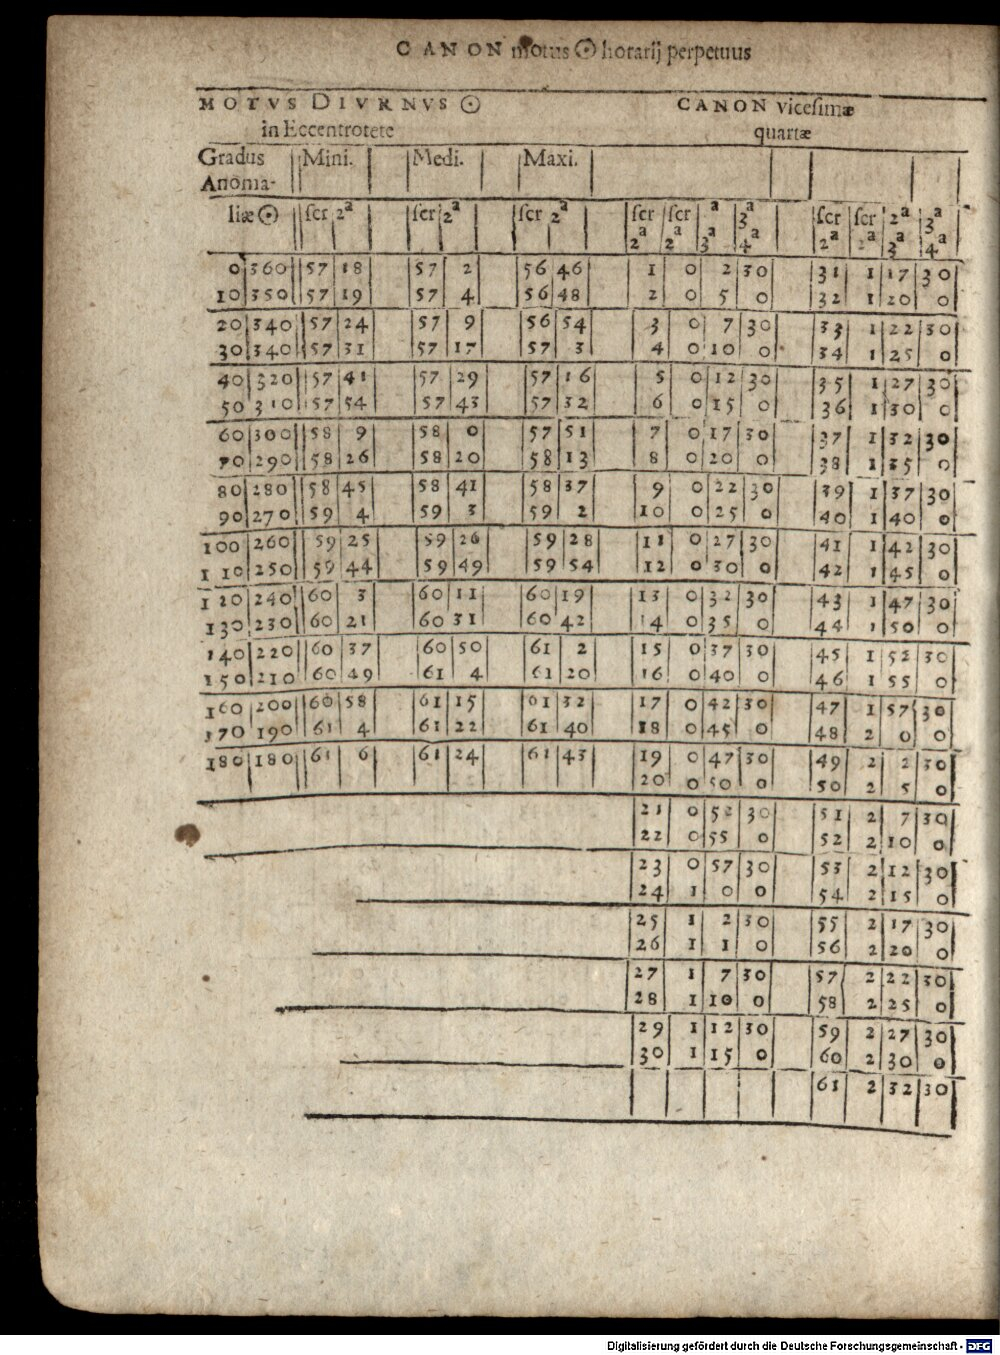 CANON motus ☉ horarij perpetuus
MOTVS DIVRNVS ☉ CANON vicesimæ
in Eccentrotete quartæ
Gradus Mini. Medi. Maxi.
Anoma-
liæ ☉ scr 2ª scr 2ª scr 2ª scr scr ª 3ª scr scr 2ª 3ª
2ª 2ª 3ª 4ª 2ª 2ª 3ª 4ª
0 360 57 18 57 2 56 46 1 0 2 30 31 1 17 30
10 350 57 19 57 4 56 48 2 0 5 0 32 1 20 0
20 340 57 24 57 9 56 54 3 0 7 30 33 1 22 30
30 340 57 31 57 17 57 3 4 0 10 0 34 1 25 0
40 320 57 41 57 29 57 16 5 0 12 30 35 1 27 30
50 310 57 54 57 43 57 32 6 0 15 0 36 1 30 0
60 300 58 9 58 0 57 51 7 0 17 30 37 1 32 30
70 290 58 26 58 20 58 13 8 0 20 0 38 1 35 0
80 280 58 45 58 41 58 37 9 0 22 30 39 1 37 30
90 270 59 4 59 3 59 2 10 0 25 0 40 1 40 0
100 260 59 25 59 26 59 28 11 0 27 30 41 1 42 30
110 250 59 44 59 49 59 54 12 0 30 0 42 1 45 0
120 240 60 3 60 11 60 19 13 0 32 30 43 1 47 30
130 230 60 21 60 31 60 42 14 0 35 0 44 1 50 0
140 220 60 37 60 50 61 2 15 0 37 30 45 1 52 30
150 210 60 49 61 4 61 20 16 0 40 0 46 1 55 0
160 200 60 58 61 15 61 32 17 0 42 30 47 1 57 30
170 190 61 4 61 22 61 40 18 0 45 0 48 2 0 0
180 180 61 6 61 24 61 43 19 0 47 30 49 2 2 30
20 0 50 0 50 2 5 0
21 0 52 30 51 2 7 30
22 0 55 0 52 2 10 0
23 0 57 30 53 2 12 30
24 1 0 0 54 2 15 0
25 1 2 30 55 2 17 30
26 1 1 0 56 2 20 0
27 1 7 30 57 2 22 30
28 1 10 0 58 2 25 0
29 1 12 30 59 2 27 30
30 1 15 0 60 2 30 0
61 2 32 30
Digitalisierung gefördert durch die Deutsche Forschungsgemeinschaft - DFG